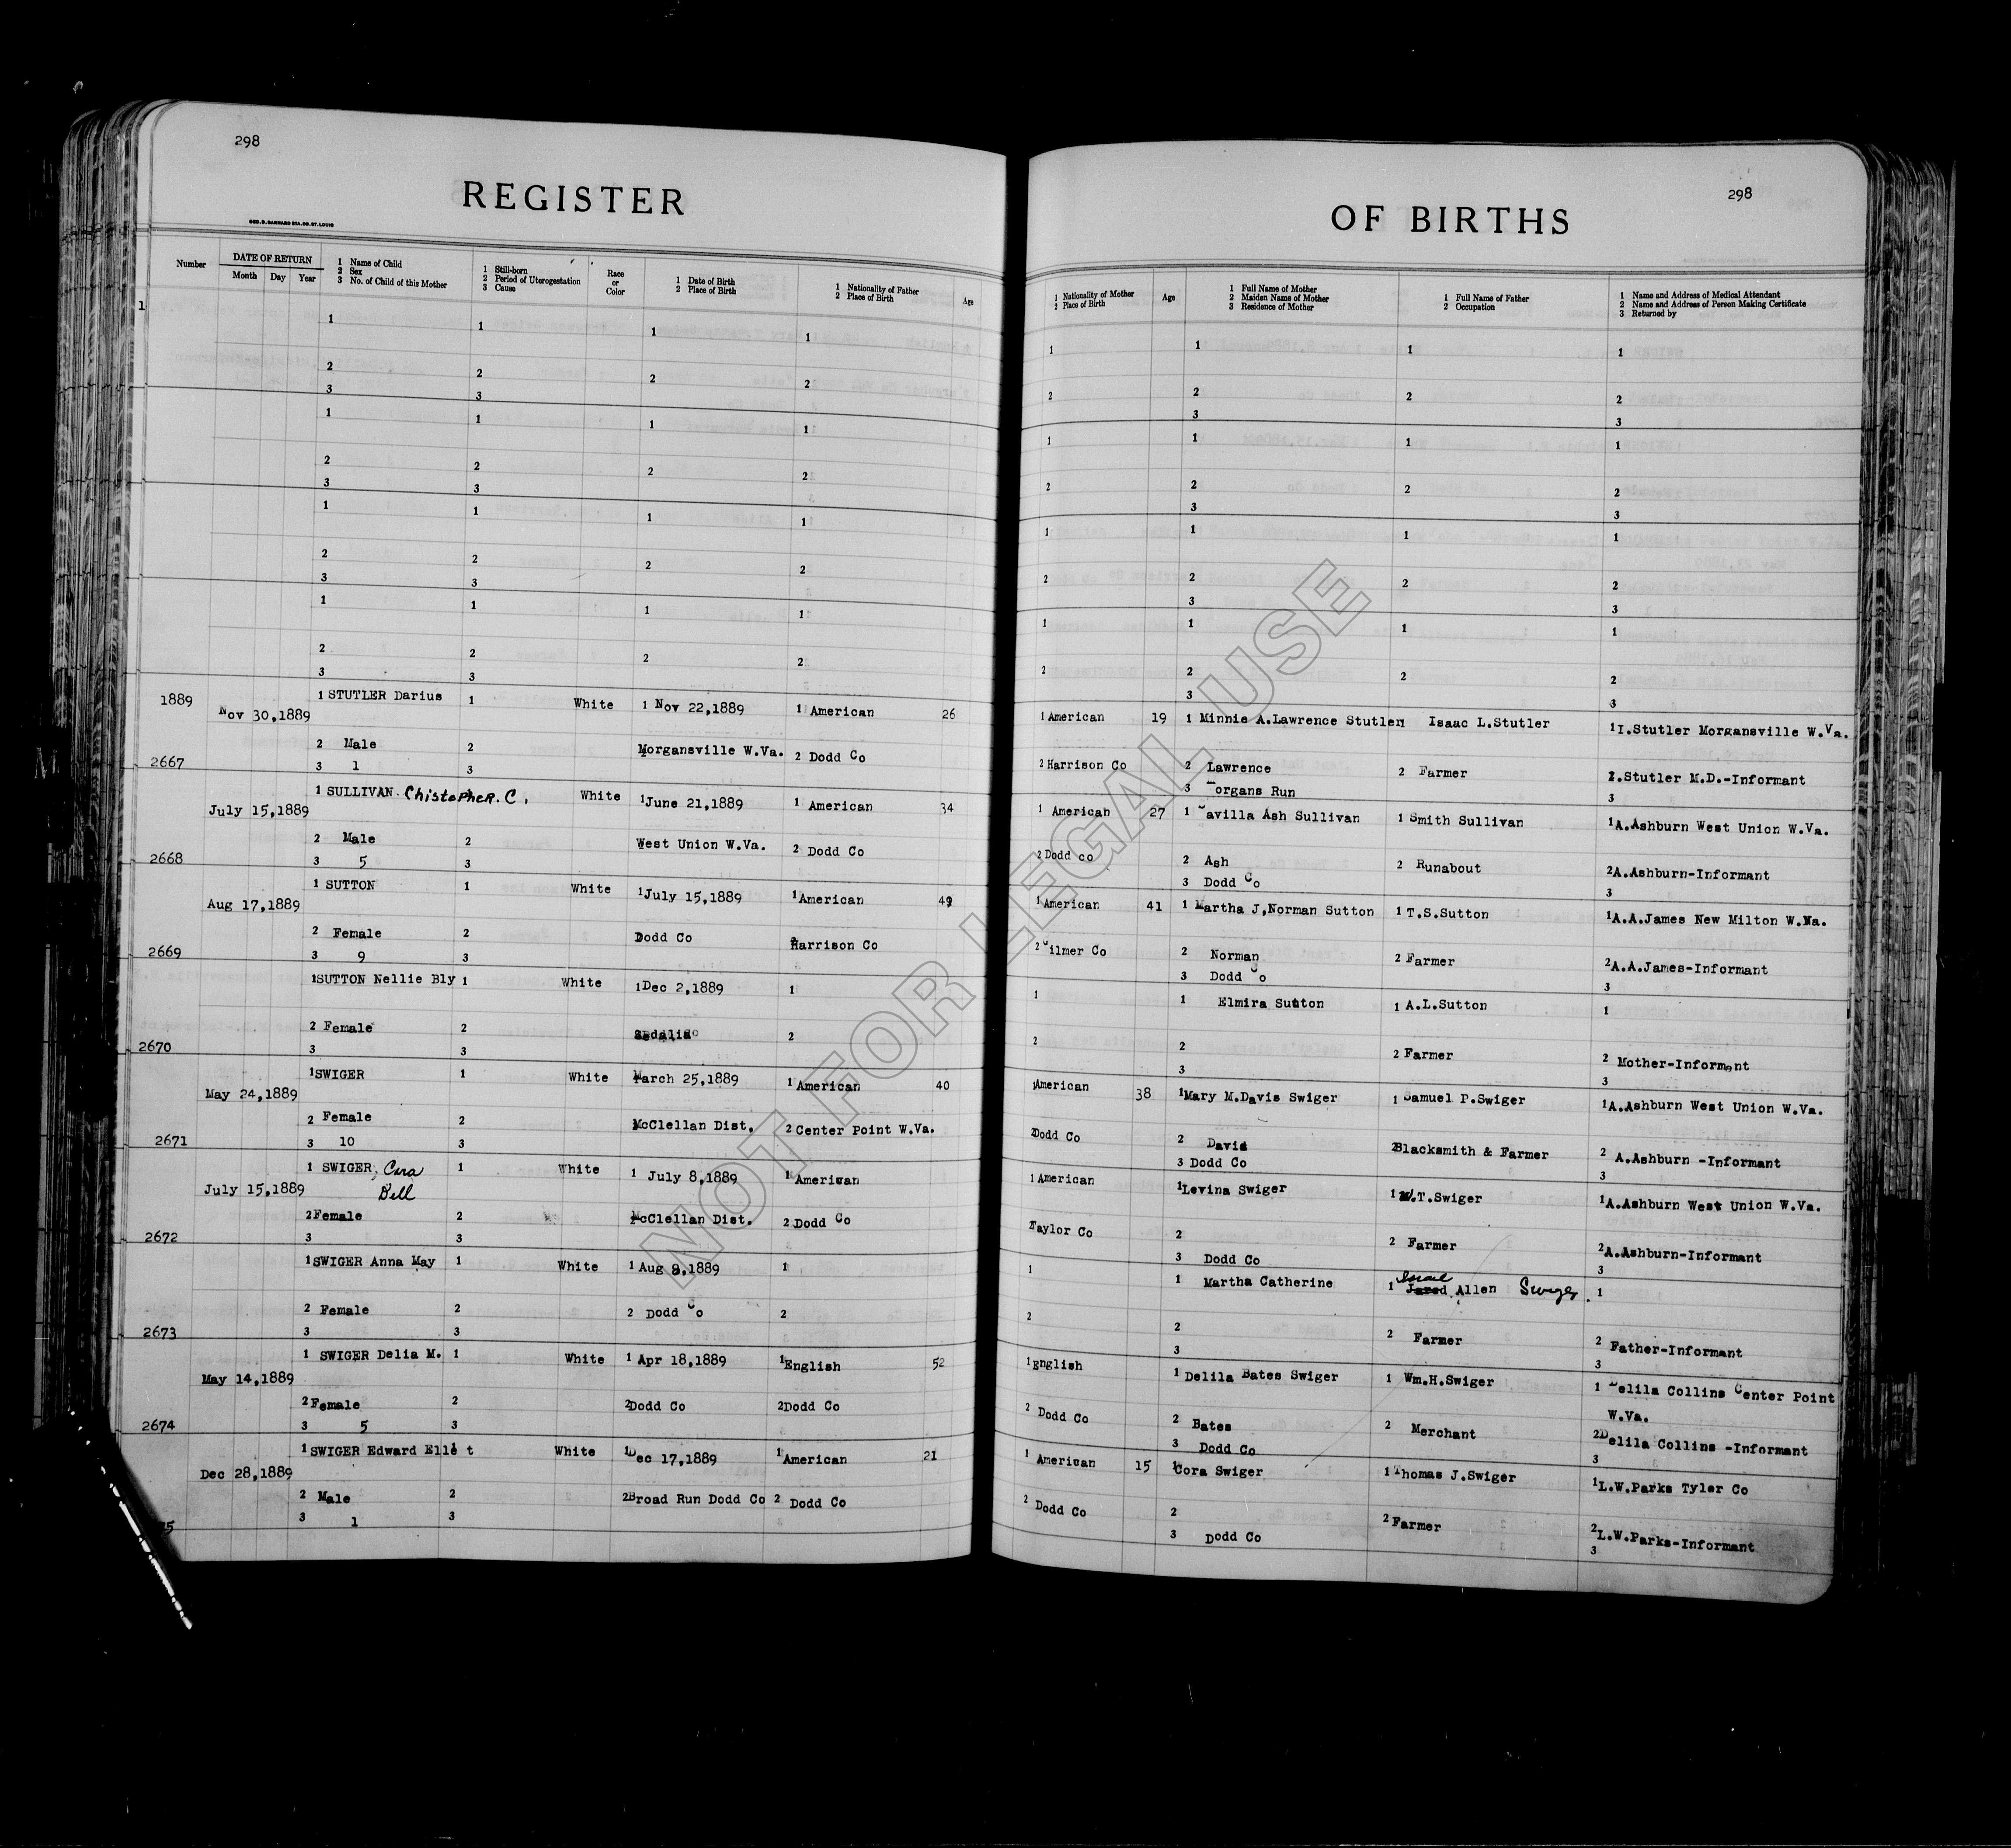 298
REGISTER
GEO. D. BARNARD STA. CO. ST. LOUIS
Number
DATE OF RETURN
Month Day Year
1 Name of Child
2 Sex
3 No. of Child of this Mother
1 Still-born
2 Period of Uterogestation
3 Cause
Race
or
Color
1 Date of Birth
2 Place of Birth
1 Nationality of Father
2 Place of Birth
Age
1
1 1 1 1
2 2 2 2
3 3
1 1 1 1
2 2 2 2
3 3
1 1 1 1
2 2 2 2
3 3
1 1 1 1
2 2 2 2
3 3
1889 1 STUTLER Darius 1 White 1 Nov 22,1889 1 American 26
Nov 30,1889
2 Male 2 Morgansville W.Va. 2 Dodd Co
2667 3 1 3
1 SULLIVAN Chistopher. C. White 1June 21,1889 1 American 34
July 15,1889
2 Male 2 West Union W.Va. 2 Dodd Co
2668 3 5 3
1 SUTTON 1 White 1July 15,1889 1American 49
Aug 17,1889
2 Female 2 Dodd Co Harrison Co
2669 3 9 3
1SUTTON Nellie Bly 1 White 1Dec 2,1889 1
2 Female 2 2
2670 3 3
1SWIGER 1 White March 25,1889 1 American 40
May 24,1889
2 Female 2 McClellan Dist. 2 Center Point W.Va.
2671 3 10 3
1 SWIGER, Cora 1 White 1 July 8,1889 1 American
July 15,1889 Bell
2Female 2 McClellan Dist. 2 Dodd Co
2672 3 3
1SWIGER Anna May 1 White 1 Aug 8,1889 1
2 Female 2 2 Dodd Co 2
2673 3 3
1 SWIGER Delia M. 1 White 1 Apr 18,1889 1English 52
May 14,1889
2Female 2 2Dodd Co 2Dodd Co
2674 3 5 3
1SWIGER Edward Elle t White 1Dec 17,1889 1American 21
Dec 28,1889
2 Male 2 2Broad Run Dodd Co 2 Dodd Co
5 3 1 3
298
OF BIRTHS
1 Nationality of Mother
2 Place of Birth
Age
1 Full Name of Mother
2 Maiden Name of Mother
3 Residence of Mother
1 Full Name of Father
2 Occupation
1 Name and Address of Medical Attendant
2 Name and Address of Person Making Certificate
3 Returned by
1 1 1 1
2 2 2 2
3 3
1 1 1 1
2 2 2 2
3 3
1 1 1 1
2 2 2 2
3 3
1 1 1 1
2 2 2 2
3 3
1 American 19 1 Minnie A.Lawrence Stutler 1 Isaac L.Stutler 1I.Stutler Morgansville W.Va.
2 Harrison Co 2 Lawrence 2 Farmer 2.Stutler M.D.-Informant
3 organs Run 3
1 American 27 1 avilla Ash Sullivan 1 Smith Sullivan 1A.Ashburn West Union W.Va.
2 Dodd co 2 Ash 2 Runabout 2A.Ashburn-Informant
3 Dodd Co 3
1American 41 1 Martha J,Norman Sutton 1 T.S.Sutton 1A.A.James New Milton W.Va.
2 Gilmer Co 2 Norman 2 Farmer 2A.A.James-Informant
3 Dodd Co 3
1 1 Elmira Sutton 1 A.L.Sutton 1
2 2 2 Farmer 2 Mother-Informant
3 3
1American 38 1Mary M.Davis Swiger 1 Samuel P.Swiger 1A.Ashburn West Union W.Va.
2Dodd Co 2 David 2Blacksmith & Farmer 2 A.Ashburn -Informant
3 Dodd Co 3
1 American 1Levina Swiger 1 W.T.Swiger 1A.Ashburn West Union W.Va.
Taylor Co 2 2 Farmer 2A.Ashburn-Informant
3 Dodd Co 3
Israel
1 1 Martha Catherine 1 Jared Allen Swiger. 1
2 2 2 Farmer 2 Father-Informant
3 3
1English 1 Delila Bates Swiger 1 Wm.H.Swiger 1 Delila Collins Center Point
W.Va.
2 Dodd Co 2 Bates 2 Merchant 2Delila Collins -Informant
3 Dodd Co 3
1 American 15 1Cora Swiger 1Thomas J.Swiger 1L.W.Parks Tyler Co
2 Dodd Co 2 2Farmer 2L.W.Parks-Informant
3 Dodd Co 3
NOT FOR LEGAL USE